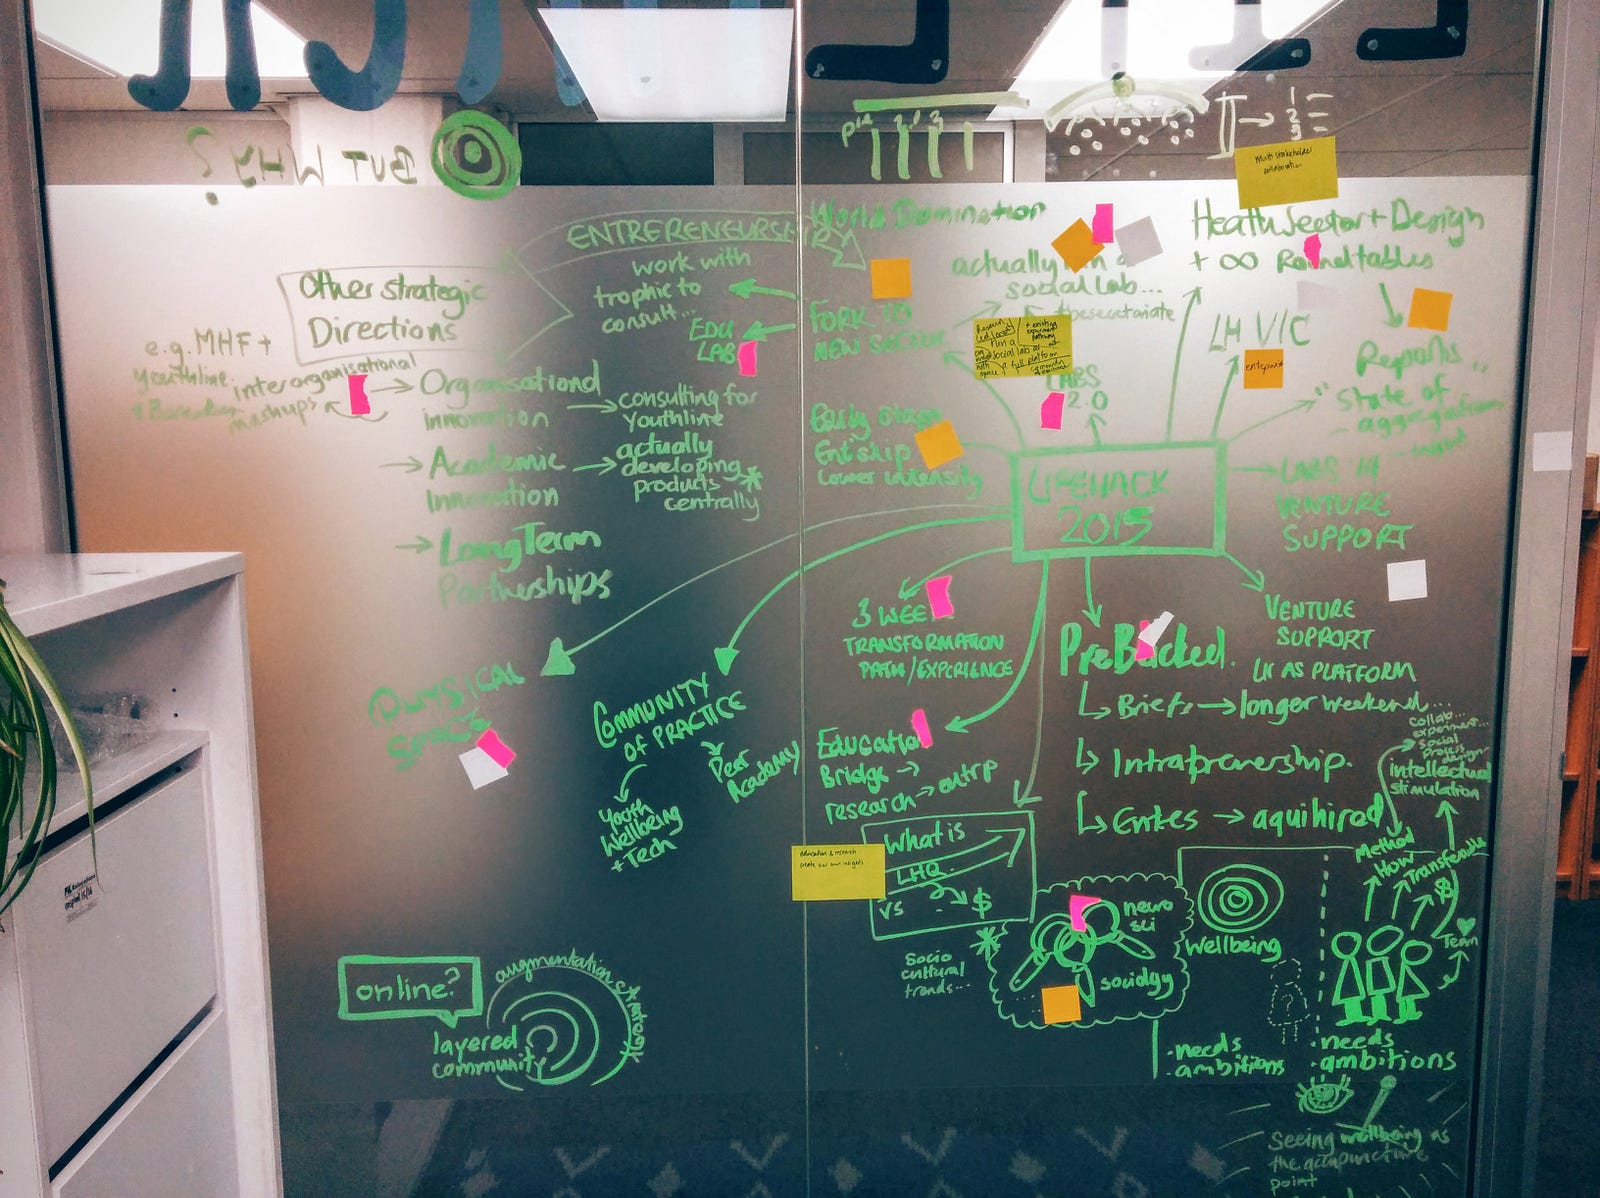 BUT WHY?
1
2
3
Multi stakeholder
collaboration
ENTREPRENEURSHIP
World Domination
Heath Sector + Design
+ ∞ Roundtables
actually run a
social lab...
Other strategic
Directions
work with
trophic to
consult...
EDU
LAB
FORK TO
NEW SECTOR
run a
social lab as
full platform
+ existing
LABS
2.0
LH V/C
enterprise
Reports..
"State of
e.g. MHF +
youthline
inter organisational
mashups
→ Organisational
innovation
→ consulting for
youthline
→ Academic
Innovation
→ actually
developing
products *
centrally
→ Long Term
Partnerships
Early stage
Ent'ship
Lower intensity
LIFEHACK
2015
→ LABS '14
VENTURE
SUPPORT
PHYSICAL
SPACE
COMMUNITY
OF PRACTICE
Peer
Academy
Youth
Wellbeing
+ Tech
3 WEEK
TRANSFORMATION
PATH/EXPERIENCE
Education
Bridge →
research → entrp
PreBacked.
Briefs → longer weekend...
Intraprenership.
Entres → aquihired
VENTURE
SUPPORT
LH AS PLATFORM
collab...
experiment...
social
process
design
intellectual
stimulation
Method
How
Transferable
$
Team
What is
LHQ
vs
$
education & research
create our own insights
socio
cultural
trends...
neuro
sci
sociology
Wellbeing
· needs
· ambitions
· needs
· ambitions
online?
layered
community
augmentation
Seeing wellbeing as
the acupuncture
point